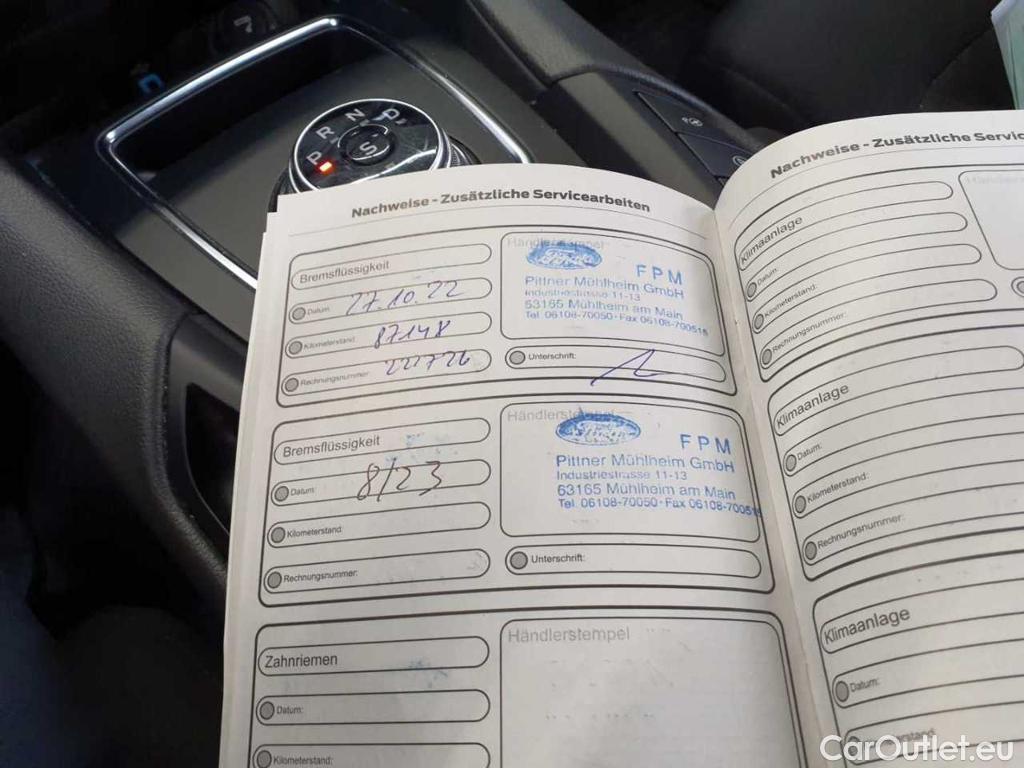 P R N D
S
Nachweise - Zusätzliche Servicearbeiten
Bremsflüssigkeit
Datum: 27.10.22
Kilometerstand: 87148
Rechnungsnummer: 221726
Händlerstempel
Ford
FPM
Pittner Mühlheim GmbH
Industriestrasse 11-13
63165 Mühlheim am Main
Tel. 06108-70050 · Fax 06108-700515
Unterschrift:
Bremsflüssigkeit
Datum: 8/23
Kilometerstand:
Rechnungsnummer:
Händlerstempel
FPM
Pittner Mühlheim GmbH
Industriestrasse 11-13
63165 Mühlheim am Main
Tel. 06108-70050 · Fax 06108-700515
Unterschrift:
Zahnriemen
Datum:
Kilometerstand:
Händlerstempel
Nachweise - Zusätzliche Servic
Klimaanlage
Datum:
Kilometerstand:
Rechnungsnummer:
Händlerstem
Klimaanlage
Datum:
Kilometerstand:
Rechnungsnummer:
Klimaanlage
Datum:
Kilometerstand
CarOutlet.eu